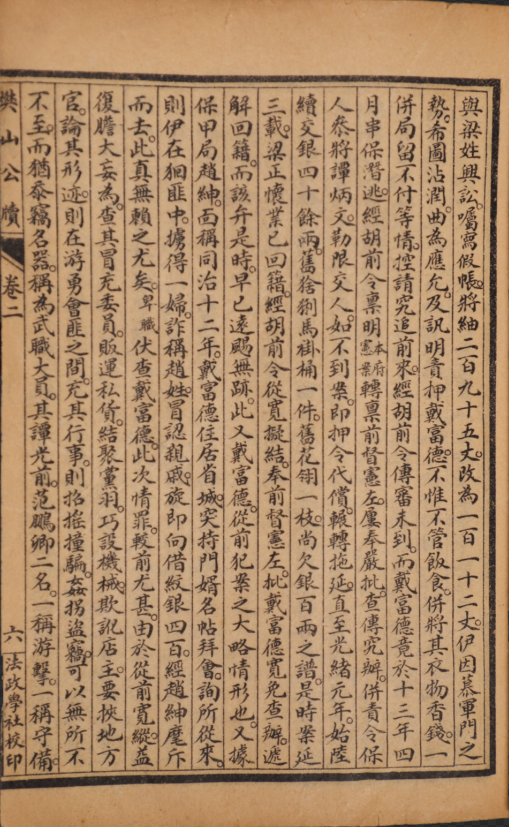 與梁姓興訟。囑寫假帳。將紬二百九十五丈。改為一百一十二丈。伊因慕軍門之
勢。希圖沾潤。曲為應允。及訊明責押戴富德。不惟不管飯食。併將其衣物香錢。一
併局留不付等情。控請究追前來。經胡前令傳審未到。而戴富德竟於十三年四
月串保潛逃。經胡前令稟明本府憲案轉稟前督憲左。屢奉嚴批。查傳究辦。併責令保
人叅將譚炳文。勒限交人。如不到案。即押令代償。輾轉拖延。直至光緒元年。始陸
續交銀四十餘兩。舊猞猁馬褂桶一件。舊花翎一枝。尚欠銀百兩之譜。是時案延
三載。梁正懷業已回籍。經胡前令從寬擬結。奉前督憲左批。戴富德寬免查辦。遞
解回籍。而該弁是時。早已遠颺無跡。此又戴富德從前犯案之大略情形也。又據
保甲局趙紳面稱。同治十二年。戴富德住居省城。突持門婿名帖拜會。詢所從來。
則伊在狪匪中。擄得一婦。詐稱趙姓。冒認親戚。旋即向借紋銀四百。經趙紳麾斥
而去。此真無賴之尤矣。卑職伏查戴富德此次情罪。較前尤甚。由於從前寬縱。益
復膽大妄為。查其冒充委員。販運私貨。結聚黨羽。巧設機械。欺訛店主。要挾地方
官。論其形迹。則在游勇會匪之間。充其行事。則招搖撞騙。姦拐盜竊。可以無所不
不至。而猶忝竊名器。稱為武職大員。其譚光前。范鵬卿二名。一稱游擊。一稱守備。
樊山公牘 卷二 六 法政學社校印